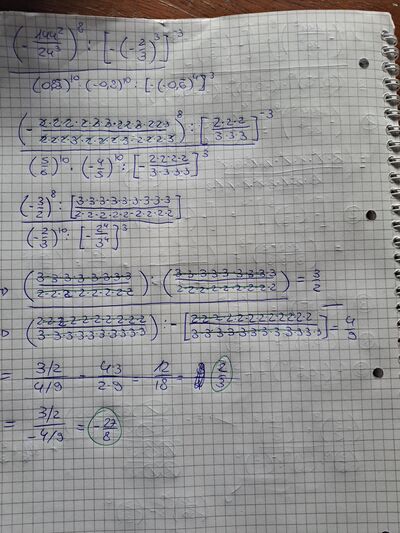 (- 144² / 24³)⁸ : [-(-2/3)³]⁻³
(0,83)¹⁰ · (-0,8)¹⁰ : [-(-0,6)⁴]³
(- 2·2·2·2·2·3·2·2·3·2·2·3 / 2·2·2·3·2·2·2·3·2·2·2·3)⁸ : [2·2·2 / 3·3·3]⁻³
(5/6)¹⁰ · (-4/5)¹⁰ : [- 2·2·2·2 / 3·3·3·3]³
(-3/2)⁸ : [3·3·3·3·3·3·3·3·3 / 2·2·2·2·2·2·2·2·2]
(-2/3)¹⁰ : [- 2⁴ / 3⁴]³
(3·3·3·3·3·3·3·3 / 2·2·2·2·2·2·2·2) : (3·3·3·3·3·3·3·3·3 / 2·2·2·2·2·2·2·2·2) = 3/2
(2·2·2·2·2·2·2·2·2·2 / 3·3·3·3·3·3·3·3·3·3) : -[2·2·2·2·2·2·2·2·2·2·2·2 / 3·3·3·3·3·3·3·3·3·3·3·3] = 4/9
= 3/2 / 4/9 = 4·3 / 2·9 = 12/18 = 2/3
= 3/2 / -4/9 = -27/8